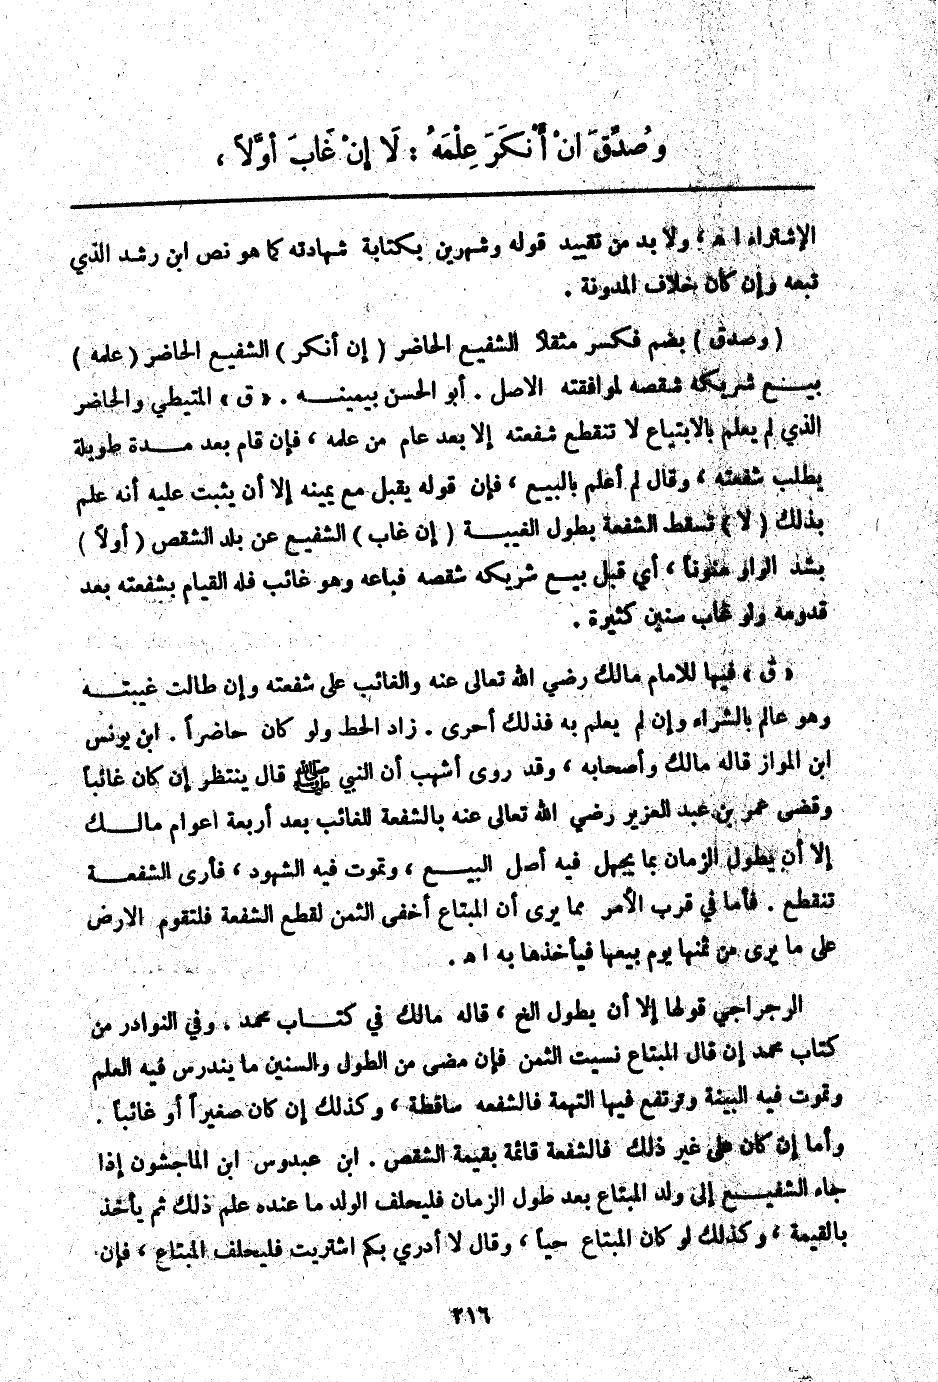 وَصُدِّقَ انْ أَنْكَرَ عِلْمَهُ : لَا إِنْ غَابَ أَوَّلاً ،
الإشتراء ا ه ، ولا بد من تقييد قوله وشهرين بكتابة شهادته كما هو نص ابن رشد الذي
تبعه وإن كان خلاف المدونة .
( وصدق ) بضم فكسر مثقلا الشفيع الحاضر ( إن أنكر ) الشفيع الحاضر ( علمه )
بيـــع شريكه شقصه لموافقته الاصل . أبو الحسن بيمينـــه . « ق » المتيطي والحاضر
الذي لم يعلم بالابتياع لا تنقطع شفعته إلا بعد عام من علمه ، فإن قام بعد مـــدة طويلة
يطلب شفعته ، وقال لم أعلم بالبيع ، فإن قوله يقبل مع يمينه إلا أن يثبت عليه أنه علم
بذلك ( لا ) تسقط الشفعة بطول الغيبـــة ( إن غاب ) الشفيع عن بلد الشقص ( أولاً )
بشد الواو منوناً ، أي قبل بيع شريكه شقصه فباعه وهو غائب فله القيام بشفعته بعد
قدومه ولو غاب سنين كثيرة .
« ق » فيها للامام مالك رضي الله تعالى عنه والغائب على شفعته وإن طالت غيبتـــه
وهو عالم بالشراء وإن لم يعلم به فذلك أحرى . زاد الحط ولو كان حاضراً . ابن يونس
ابن المواز قاله مالك وأصحابه ، وقد روى أشهب أن النبي ﷺ قال ينتظر إن كان غائباً
وقضى عمر بن عبد العزيز رضي الله تعالى عنه بالشفعة للغائب بعد أربعة اعوام مالـــك
إلا أن يطول الزمان بما يجهل فيه أصل البيـــع ، وتموت فيه الشهود ، فأرى الشفعـــة
تنقطع . فأما في قرب الأمر مما يرى أن المبتاع أخفى الثمن لقطع الشفعة فلتقوم الارض
على ما يرى من ثمنها يوم بيعها فيأخذها به ا ه .
الرجراجي قولها إلا أن يطول الخ ، قاله مالك في كتـــاب محمد . وفي النوادر من
كتاب محمد إن قال المبتاع نسيت الثمن فإن مضى من الطول والسنين ما يندرس فيه العلم
وتموت فيه البينة وترتفع فيها التهمة فالشفعه ساقطة ، وكذلك إن كان صغيراً أو غائباً .
وأما إن كان على غير ذلك فالشفعة قائمة بقيمة الشقص . ابن عبدوس ابن الماجشون إذا
جاء الشفيـــع إلى ولد المبتاع بعد طول الزمان فليحلف الولد ما عنده علم ذلك ثم يأخذ
بالقيمة ، وكذلك لو كان المبتاع حياً ، وقال لا أدري بكم اشتريت فليحلف المبتاع ، فإن
٢١٦